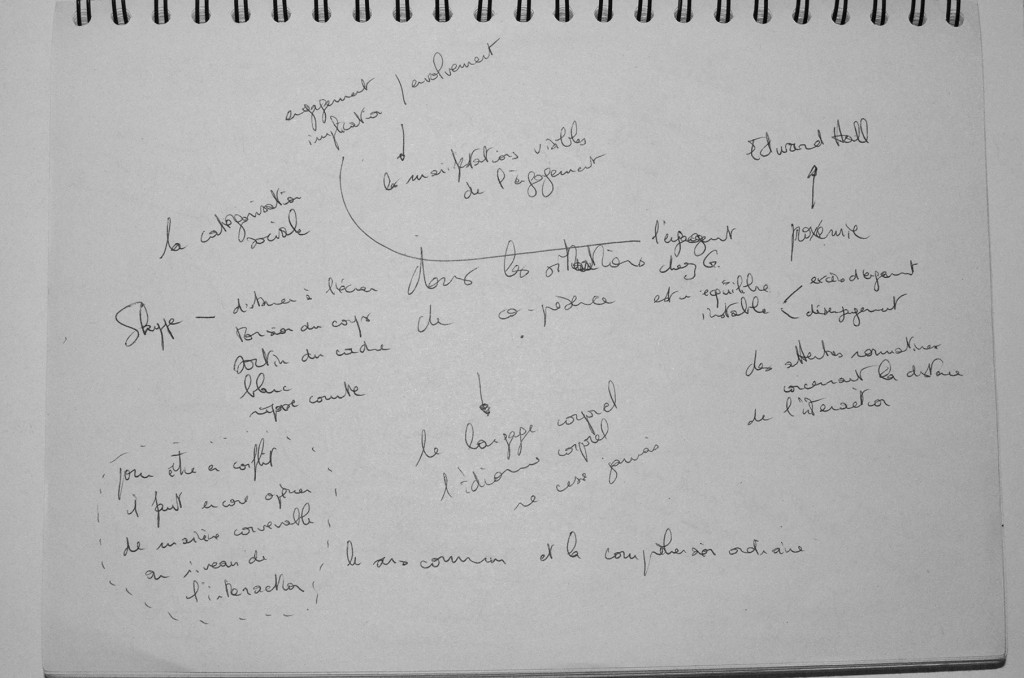 engagement / involvement
implication
les manifestations visibles
de l'engagement
Edward Hall
la catégorisation
sociale
proxémie
dans les situations
de co-présence
l'engagement
chez G.
est un équilibre
instable
excès d'engagement
désengagement
Skype — distance à l'écran
torsion du corps
sortin du cadre
blanc
réponse courte
des attentes normatives
concernant la distance
de l'interaction
le langage corporel
l'idiome corporel
ne cesse jamais
pour être en conflit
il faut encore opérer
de manière convenable
au niveau de
l'interaction
le sens commun et la compréhension ordinaire